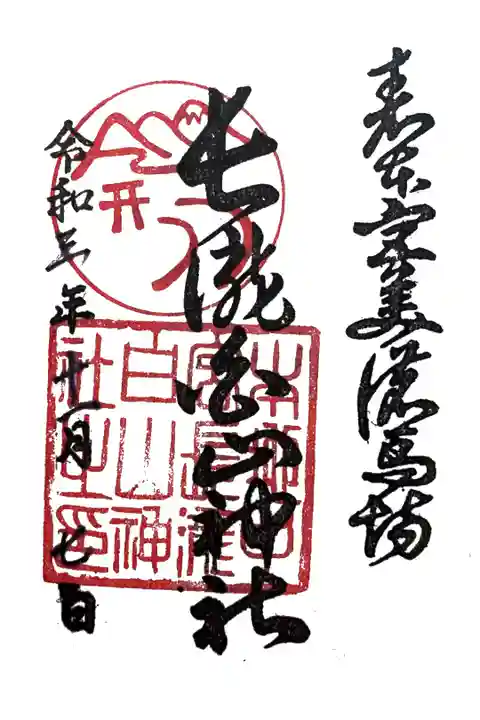 表本宮美濃馬場
長瀧白山神社
令和三年十一月七日
長瀧
白山神
社之印